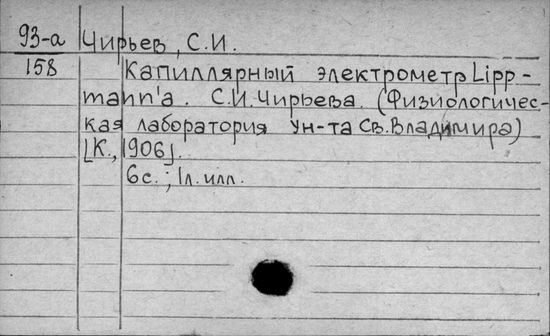 93-а Чирьев, С.И.
158 Капиллярный электрометр Lipp-
mann'а. С.И.Чирьева. (Физиологичес-
кая лаборатория Ун-та Св.Владимира)
[К., 1906].
6с.; 1л.илл.